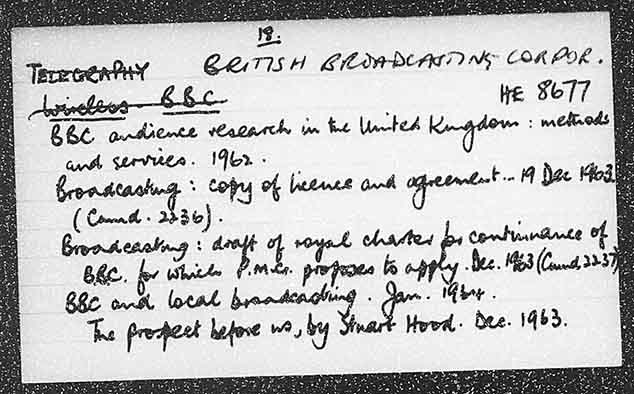 18.
TELEGRAPHY BRITISH BROADCASTING CORPOR.
Wireless BBC HE 8677
BBC audience research in the United Kingdom : methods
and services. 1962.
Broadcasting : copy of licence and agreement... 19 Dec 1963
(Cmnd. 2236).
Broadcasting : draft of royal charter for continuance of
BBC. for which P.M.G. proposes to apply. Dec. 1963 (Cmnd 2237)
BBC and local broadcasting. Jan. 1964.
The prospect before us, by Stuart Hood. Dec. 1963.